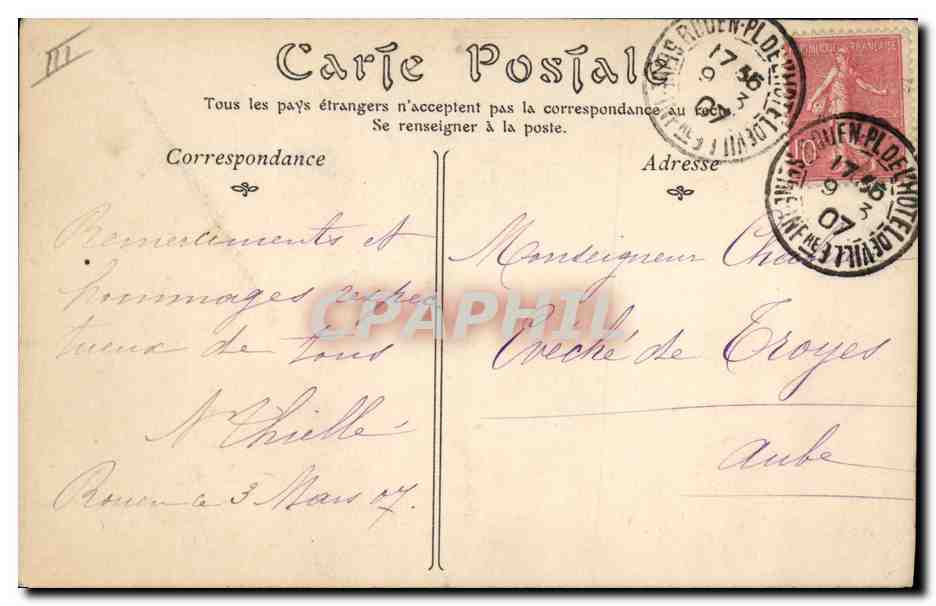 III
Carte Postale
Tous les pays étrangers n'acceptent pas la correspondance au recto
Se renseigner à la poste.
Correspondance
Adresse
ROUEN-PL. DE L'HOTEL DE VILLE
SEINE INFRE
17 35
9 3
07
ROUEN-PL. DE L'HOTEL DE VILLE
SEINE INFRE
17 35
9 3
07
FRANÇAISE
10
Remerciments et
hommages respec
tueux de tous
N Thiellé
Rouen le 3 Mars 07.
Monseigneur
Evêché de Troyes
Aube
CPAPHIL